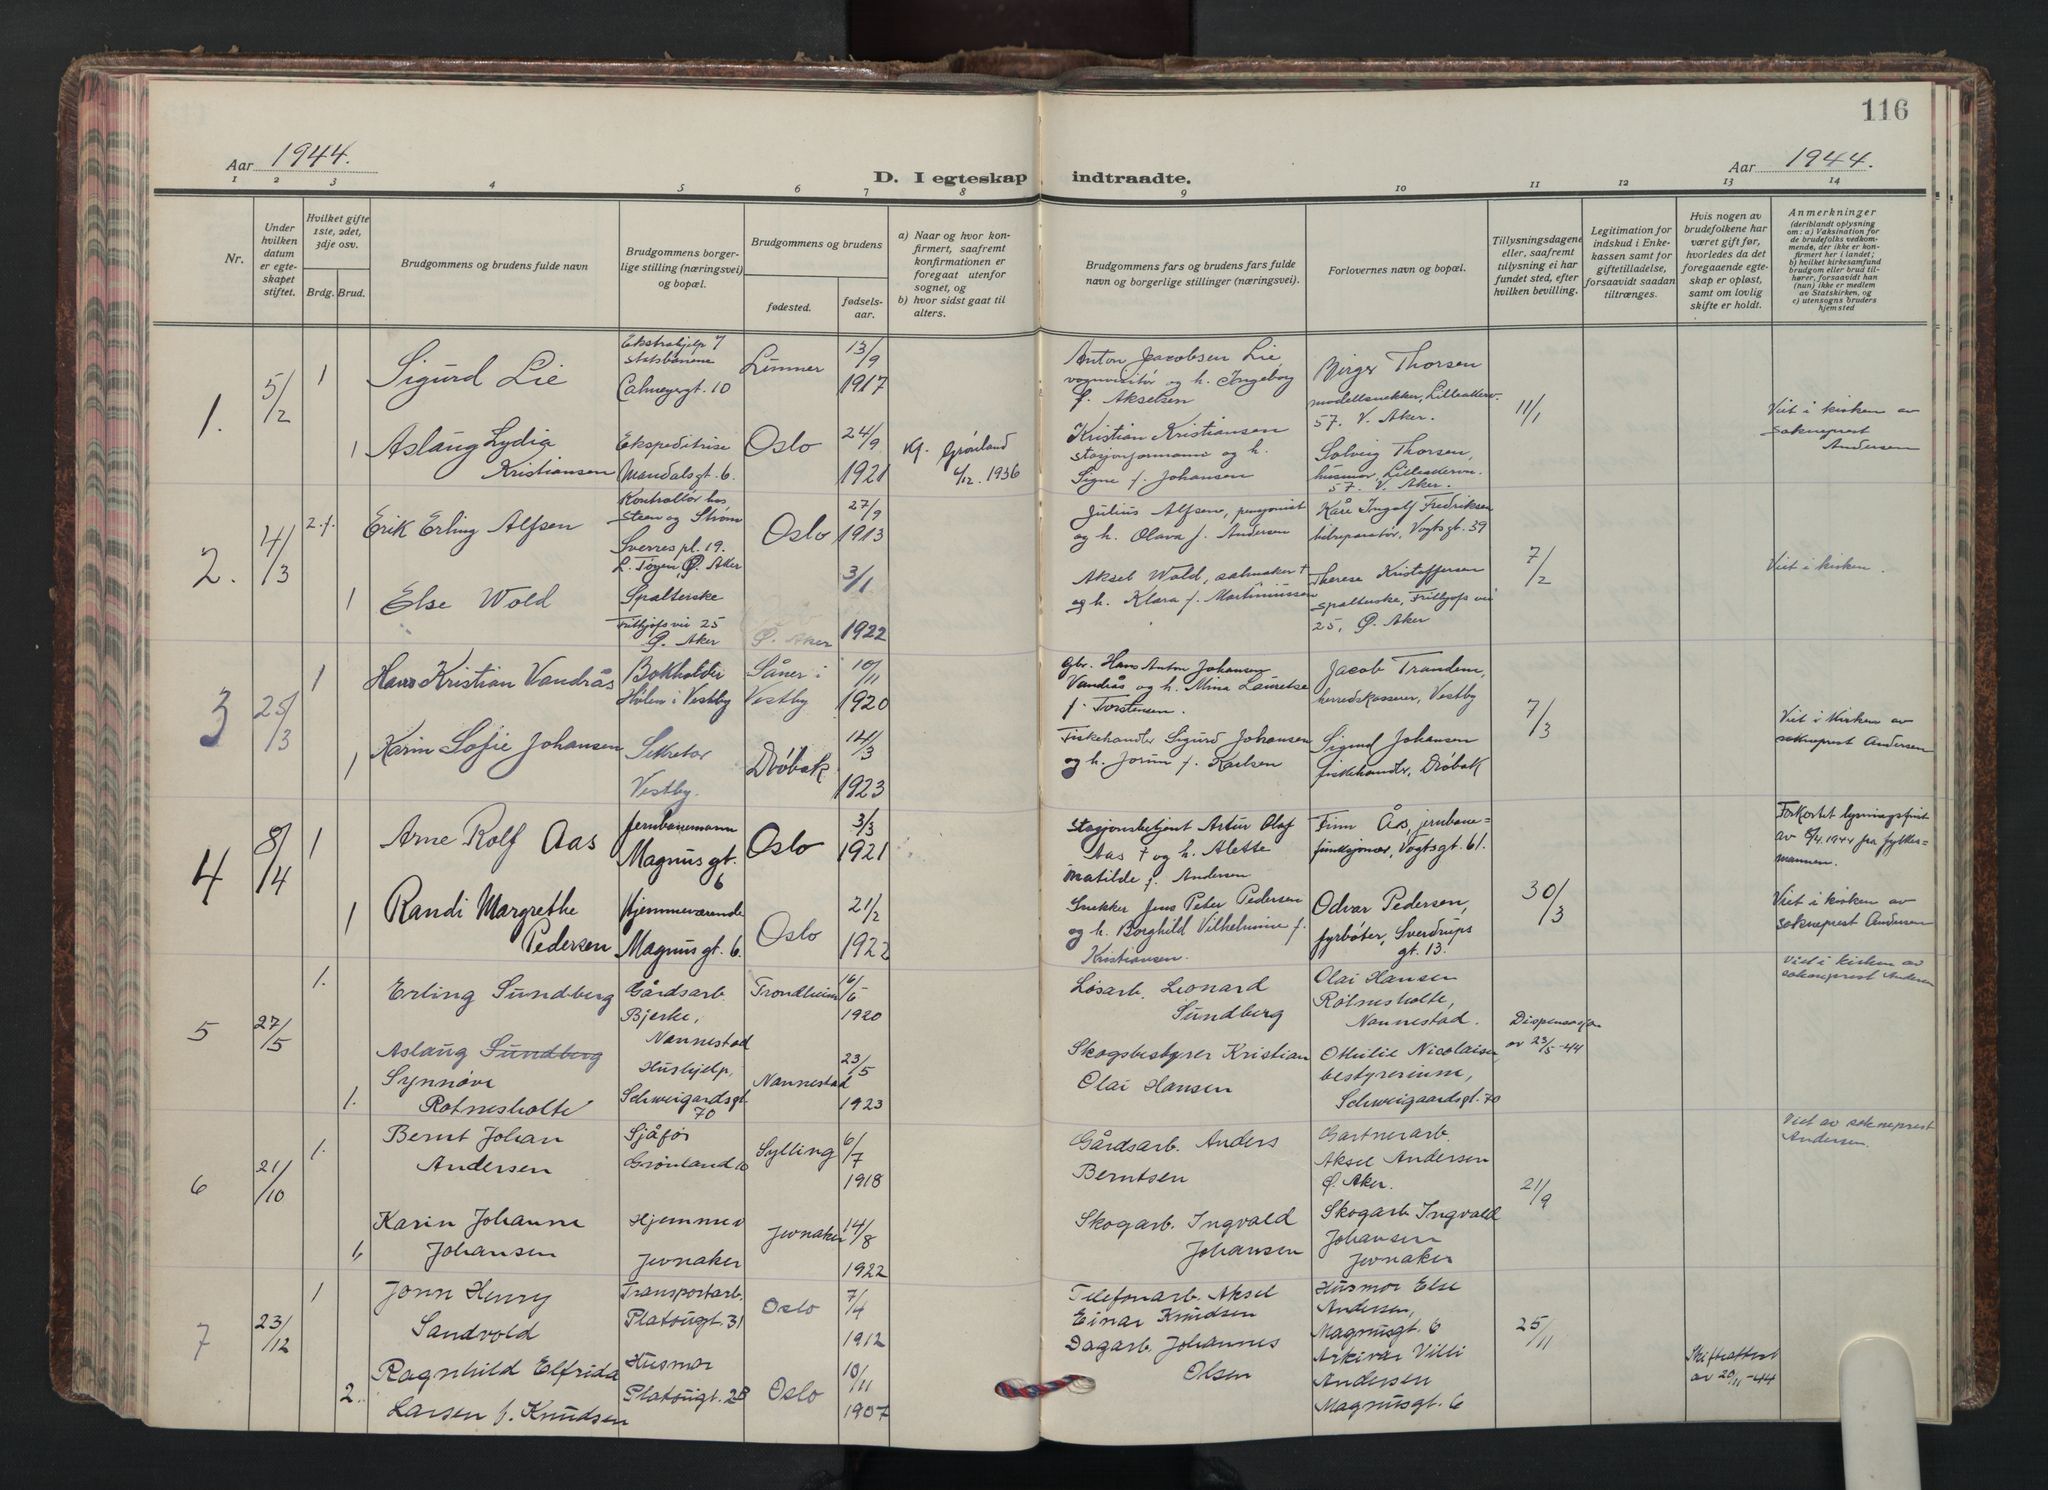 116
Aar 1944.
D. I egteskap indtraadte.
Aar 1944.
1 2 3 4 5 6 7 8 9 10 11 12 13 14
Nr.
Under hvilken datum er egteskapet stiftet.
Hvilket gifte 1ste, 2det, 3dje osv.
Brdg. Brud.
Brudgommens og brudens fulde navn
Brudgommens borgerlige stilling (næringsvei) og bopæl.
Brudgommens og brudens
fødested.
fødselsaar.
a) Naar og hvor konfirmert, saafremt konfirmationen er foregaat utenfor sognet, og
b) hvor sidst gaat til alters.
Brudgommens fars og brudens fars fulde navn og borgerlige stillinger (næringsvei).
Forlovernes navn og bopæl.
Tillysningsdagene eller, saafremt tillysning ei har fundet sted, efter hvilken bevilling.
Legitimation for indskud i Enkekassen samt for giftetilladelse, forsaavidt saadan tiltrænges.
Hvis nogen av brudefolkene har været gift før, hvorledes da det foregaaende egteskap er opløst, samt om lovlig skifte er holdt.
Anmerkninger (deriblandt oplysning om: a) Vaksination for de brudefolks vedkommende, der ikke er konfirmert her i landet; b) hvilket kirkesamfund brudgom eller brud tilhører, forsaavidt han (hun) ikke er medlem av Statskirken, og c) utensogns bruders hjemsted
1. 5/2 1 Sigurd Lie
Ekstrahjelp v/ statsbanene
Calmeyergt. 10
Limmer
13/9 1917
Anton Jacobsen Lie,
vognvisitør og h. Ingeborg
f. Akselsen
Birger Thorsen
modellsnekker, Lilleakerv.
57. V. Aker.
11/1
Viet i kirken av
sokneprest
Andersen
1 Aslaug Lydia
Kristiansen
Ekspeditrise
Mandalsgt. 6.
Oslo
24/9 1921
Kf. Grønland
6/12. 1936
Kristian Kristiansen
stasjonsformann og h.
Signe f. Johansen
Solveig Thorsen,
husmor, Lilleakerv.
57. V. Aker.
2. 4/3 2.f. Erik Erling Alfsen
Kontrollør hos
Steen og Strøm
Sverres pl. 19.
L. Tøyen, Ø. Aker
Oslo
27/9 1913
Julius Alfsen, pensjonist
og h. Olava f. Andersen
Kåre Ingolf Fredriksen
bilreparatør, Vogtsgt. 39
7/2
Viet i kirken.
1 Else Wold
Spalterske
Fritjofs vei 25
Ø. Aker
Ø. Aker
3/1 1922
Aksel Wold, salmaker †
og h. Klara f. Martiniussen
Therese Kristoffersen
spalterske, Fritjofs vei
25, Ø. Aker
3 25/3 1 Hans Kristian Vandrås
Bokholder
Hølen i Vestby
Såner i
Vestby
10/11 1920
Gbr. Hans Anton Johansen
Vandrås og h. Mina Lauretse
f. Torstensen.
Jacob Trandem,
herredskasserer, Vestby
7/3
Viet i kirken av
sokneprest Andersen
1 Karin Sofie Johansen
Sekretær
Vestby.
Drøbak
14/3 1923
Fiskehandler Sigurd Johansen
og h. Jorun f. Karlsen
Sigurd Johansen
fiskehandler, Drøbak
4 8/4 1 Arne Rolf Aas
Jernbanemann
Magnus gt.
6
Oslo
3/3 1921
Stasjonsbetjent Artur Olaf
Aas † og h. Alette
Matilde f. Andersen
Finn Ås, jernbane=
funksjonær, Vogtsgt. 61.
30/3
Forkortet lysningsfrist
av 6/4.1944 fra fylkes-
mannen.
1 Randi Margrethe
Pedersen
Hjemmeværende
Magnus gt. 6.
Oslo
21/2 1922
Snekker Jens Peter Pedersen
og h. Borghild Vilhelmine f.
Kristiansen.
Odvar Pedersen,
fyrbøter, Sverdrups
gt. 13.
Viet i kirken av
sokneprest Andersen
5 27/5 1. Erling Sundberg
Gårdsarb.
Bjerke,
Nannestad
Trondheim
16/5 1920
Løsarb. Leonard
Sundberg
Olai Hansen
Rotnesholte,
Nannestad.
Dispensasjon
av 23/5-44
Viet i kirken av
sokneprest Andersen
1. Aslaug Sundberg
Synnøve
Rotnesholte
Hushjelp,
Schweigaardsgt.
70
Nannestad
23/5 1923
Skogsbestyrer Kristian
Olai Hansen
Othilie Nicolaisen
bestyrerinne,
Schweigaardsgt. 70
6 21/10 1. Bernt Johan
Andersen
Sjåfør
Grønland 10
Sylling
6/7 1918
Gårdsarb. Anders
Berntsen
Gartnerarb.
Aksel Andersen
Ø. Aker.
21/9
Viet av sokneprest
Andersen.
1. Karin Johanne
Johansen
Hjemmev
Jevnaker
Jevnaker
14/8 1922
Skogarb. Ingvald
Johansen
Skogarb Ingvald
Johansen
Jevnaker
7 23/12 1 Jonn Henry
Sandvold
Transportarb.
Platougt. 31
Oslo
7/4 1912
Telefonarb. Aksel
Einar Knudsen
Husmor Else
Andersen,
Magnusgt. 6
25/11
2. Ragnhild Elfrida
Larsen f. Knudsen
Husmor
Platougt. 28
Oslo
10/11 1907
Dagarb. Johannes
Olsen
Arkivar Villi
Andersen
Magnusgt. 6
Skifteattest
av 20/11-44